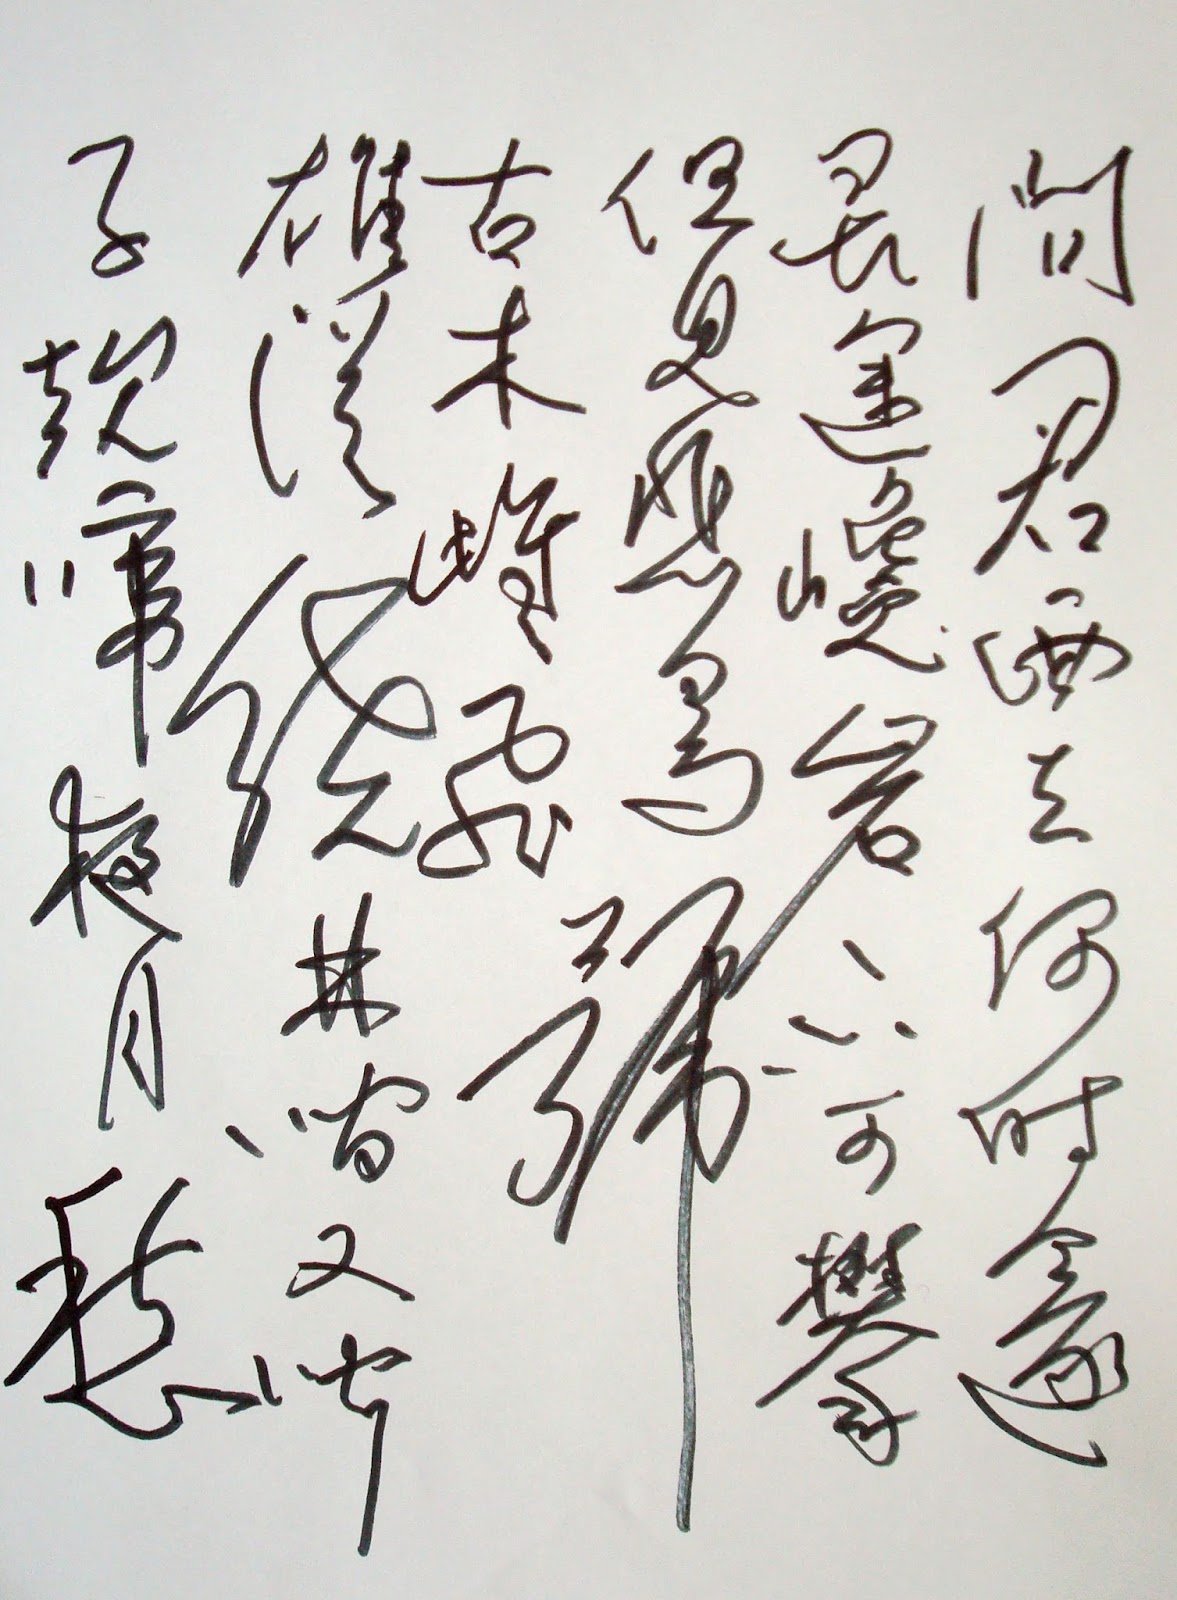 問君西去何時還
畏途巉岩不可攀
但見悲鳥號
古木雌飛
雄從繞林間又聞
子規啼夜月愁